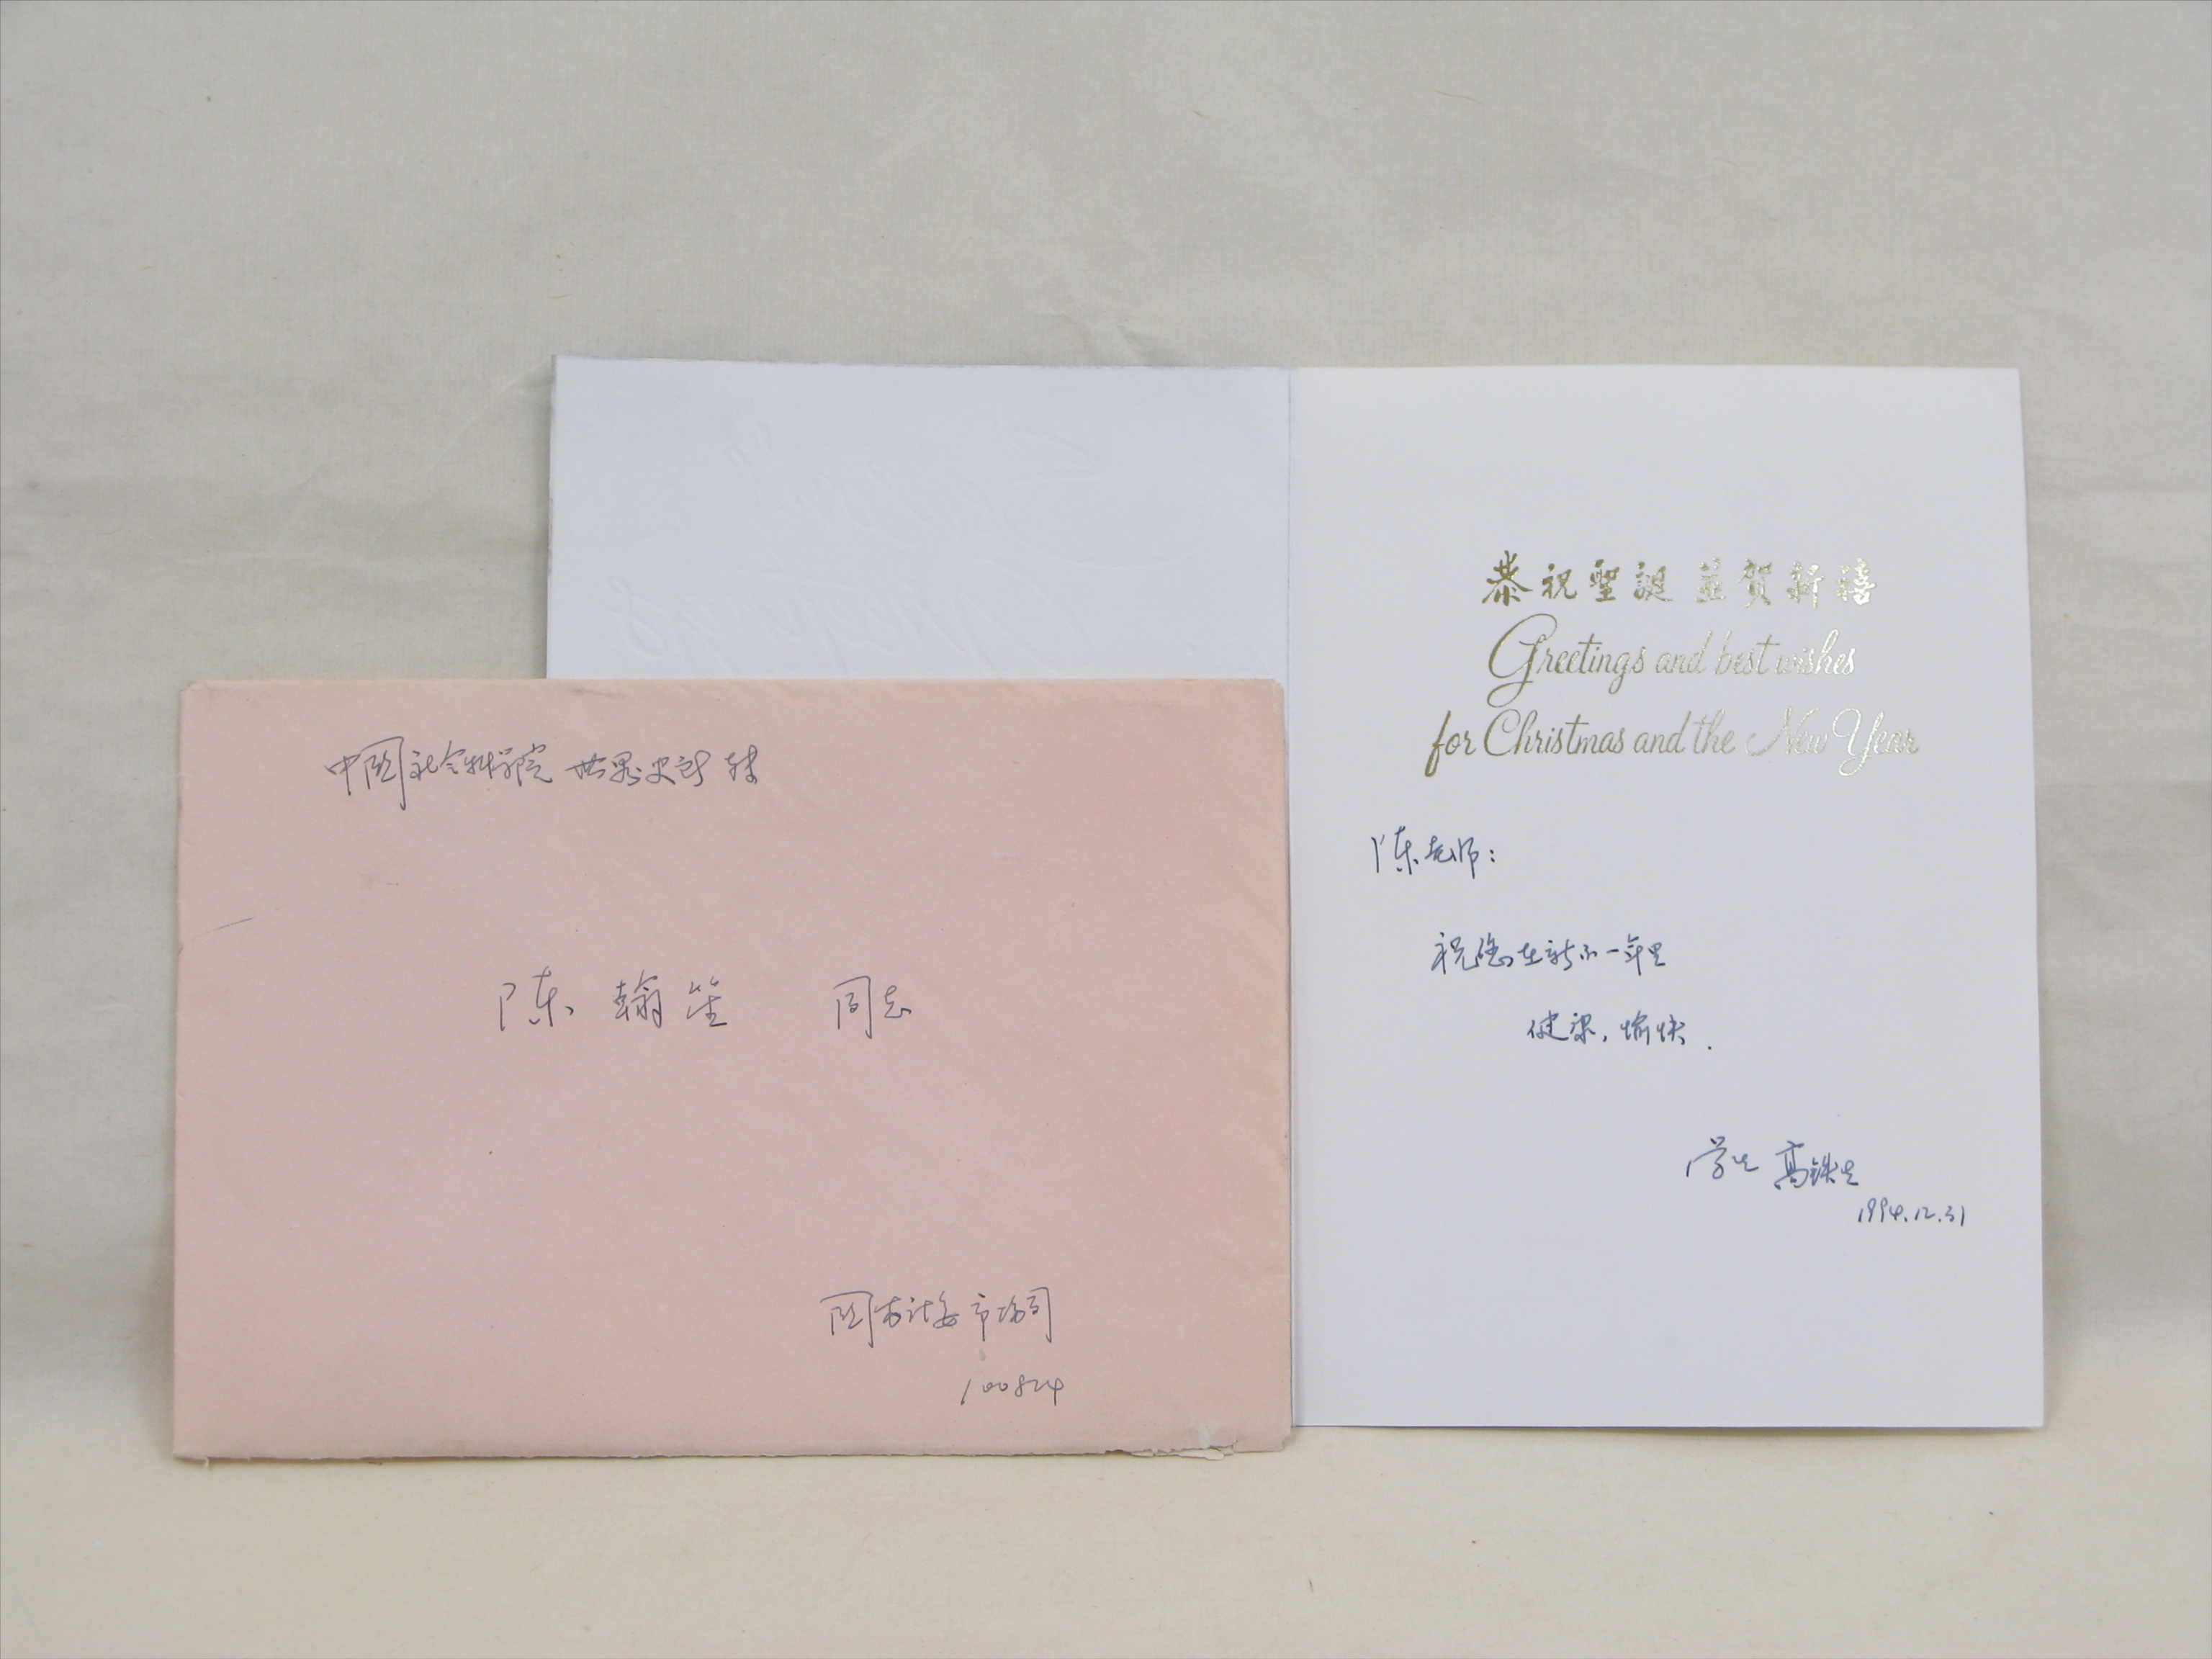 中国社会科学院 世界史所 转
陈翰笙 同志
国家计委市场司
100824
恭祝聖誕 並贺新禧
Greetings and best wishes
for Christmas and the New Year
陈老师:
祝您在新的一年里
健康,愉快.
学生 高铁生
1994.12.31